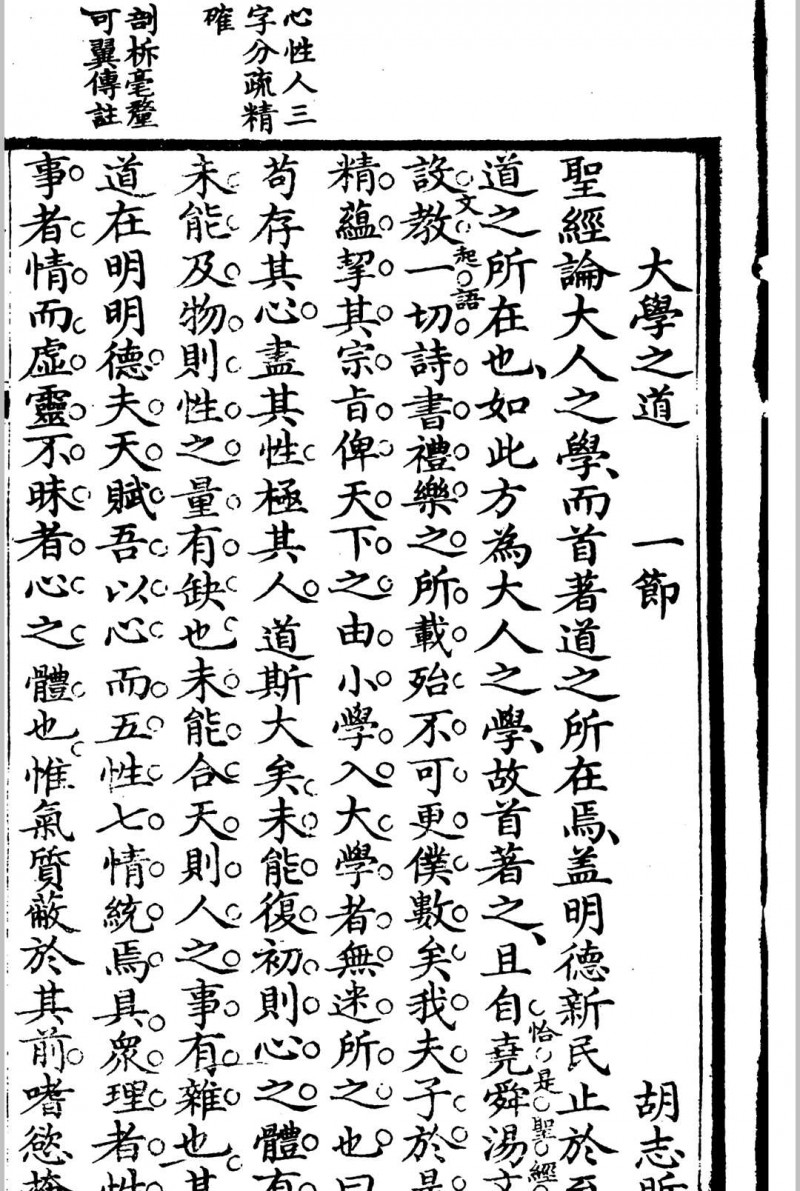 大學之道 一節 胡志
聖經論大人之學而首著道之所在焉蓋明德新民止於
道之所在也如此方為大人之學故首著之且自堯舜湯文
恰是聖經
設教一切詩書禮樂之所載殆不可更僕數矣我夫子於是
文起語
精蘊挈其宗旨俾天下之由小學入大學者無迷所之也曰
苟存其心盡其性極其人道斯大矣未能復初則心之體有
未能及物則性之量有缺也未能合天則人之事有雜也其
道在明明德夫天賦吾以心而五性七情統焉具眾理者性
事者情而虛靈不昧者心之體也惟氣質蔽於其前嗜慾
心性人三
字分疏精
確
剖柝毫釐
可翼傳註